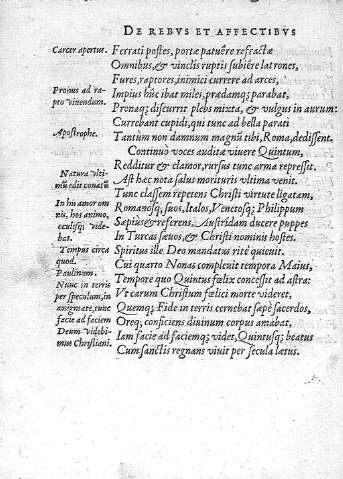 DE REBVS ET AFFECTIBVS
Carcer apertum. Ferrati postes, portæ patuêre refractæ
Omnibus, & vinclis ruptis subiêre latrones,
Fures, raptores, inimici currere ad arces,
Pronus ad ra- Impius hûc ibat miles, prædamq; parabat,
pto viuendum. Pronaq; discurrit plebs mixta, & vulgus in aurum:
Currebant cupidi, qui tunc ad bella parati
Apostrophe. Tantum non damnum magnū tibi, Roma, dedissent.
Continuò voces audita viuere Quintum,
Redditur & clamor, rursus tunc arma repressit.
Natura vlti- Ast hæc nota salus morituris vltima venit.
mū edit conatū Tunc classem repetens Christi virtute ligatam,
In his amor om Romanosq; suos, Italos, Venetosq; Philippum
nis, hos animo, Sæpius & referens, Austriadam ducere puppes
oculisq; vide- In Turcas sæuos, & Christi nominis hostes.
bat.
Tempus circa Spiritus ille Deo mandatu ritè quieuit.
quod. Cui quarto Nonas compleuit tempora Maius,
Paulinum. Tempore quo Quintus fœlix concessit ad astra:
Nunc in terris
per speculum, in Vt carum Christum fœlici morte videret,
ænigmate, tunc Quemq; Fide in terris cernebat sæpè sacerdos,
facie ad faciem Oreq; conficiens diuinum corpus amabat,
Deum videbi- Iam facie ad faciemq; videt, Quintusq; beatus
mus Christiani. Cum sanctis regnans viuit per secula lætus.